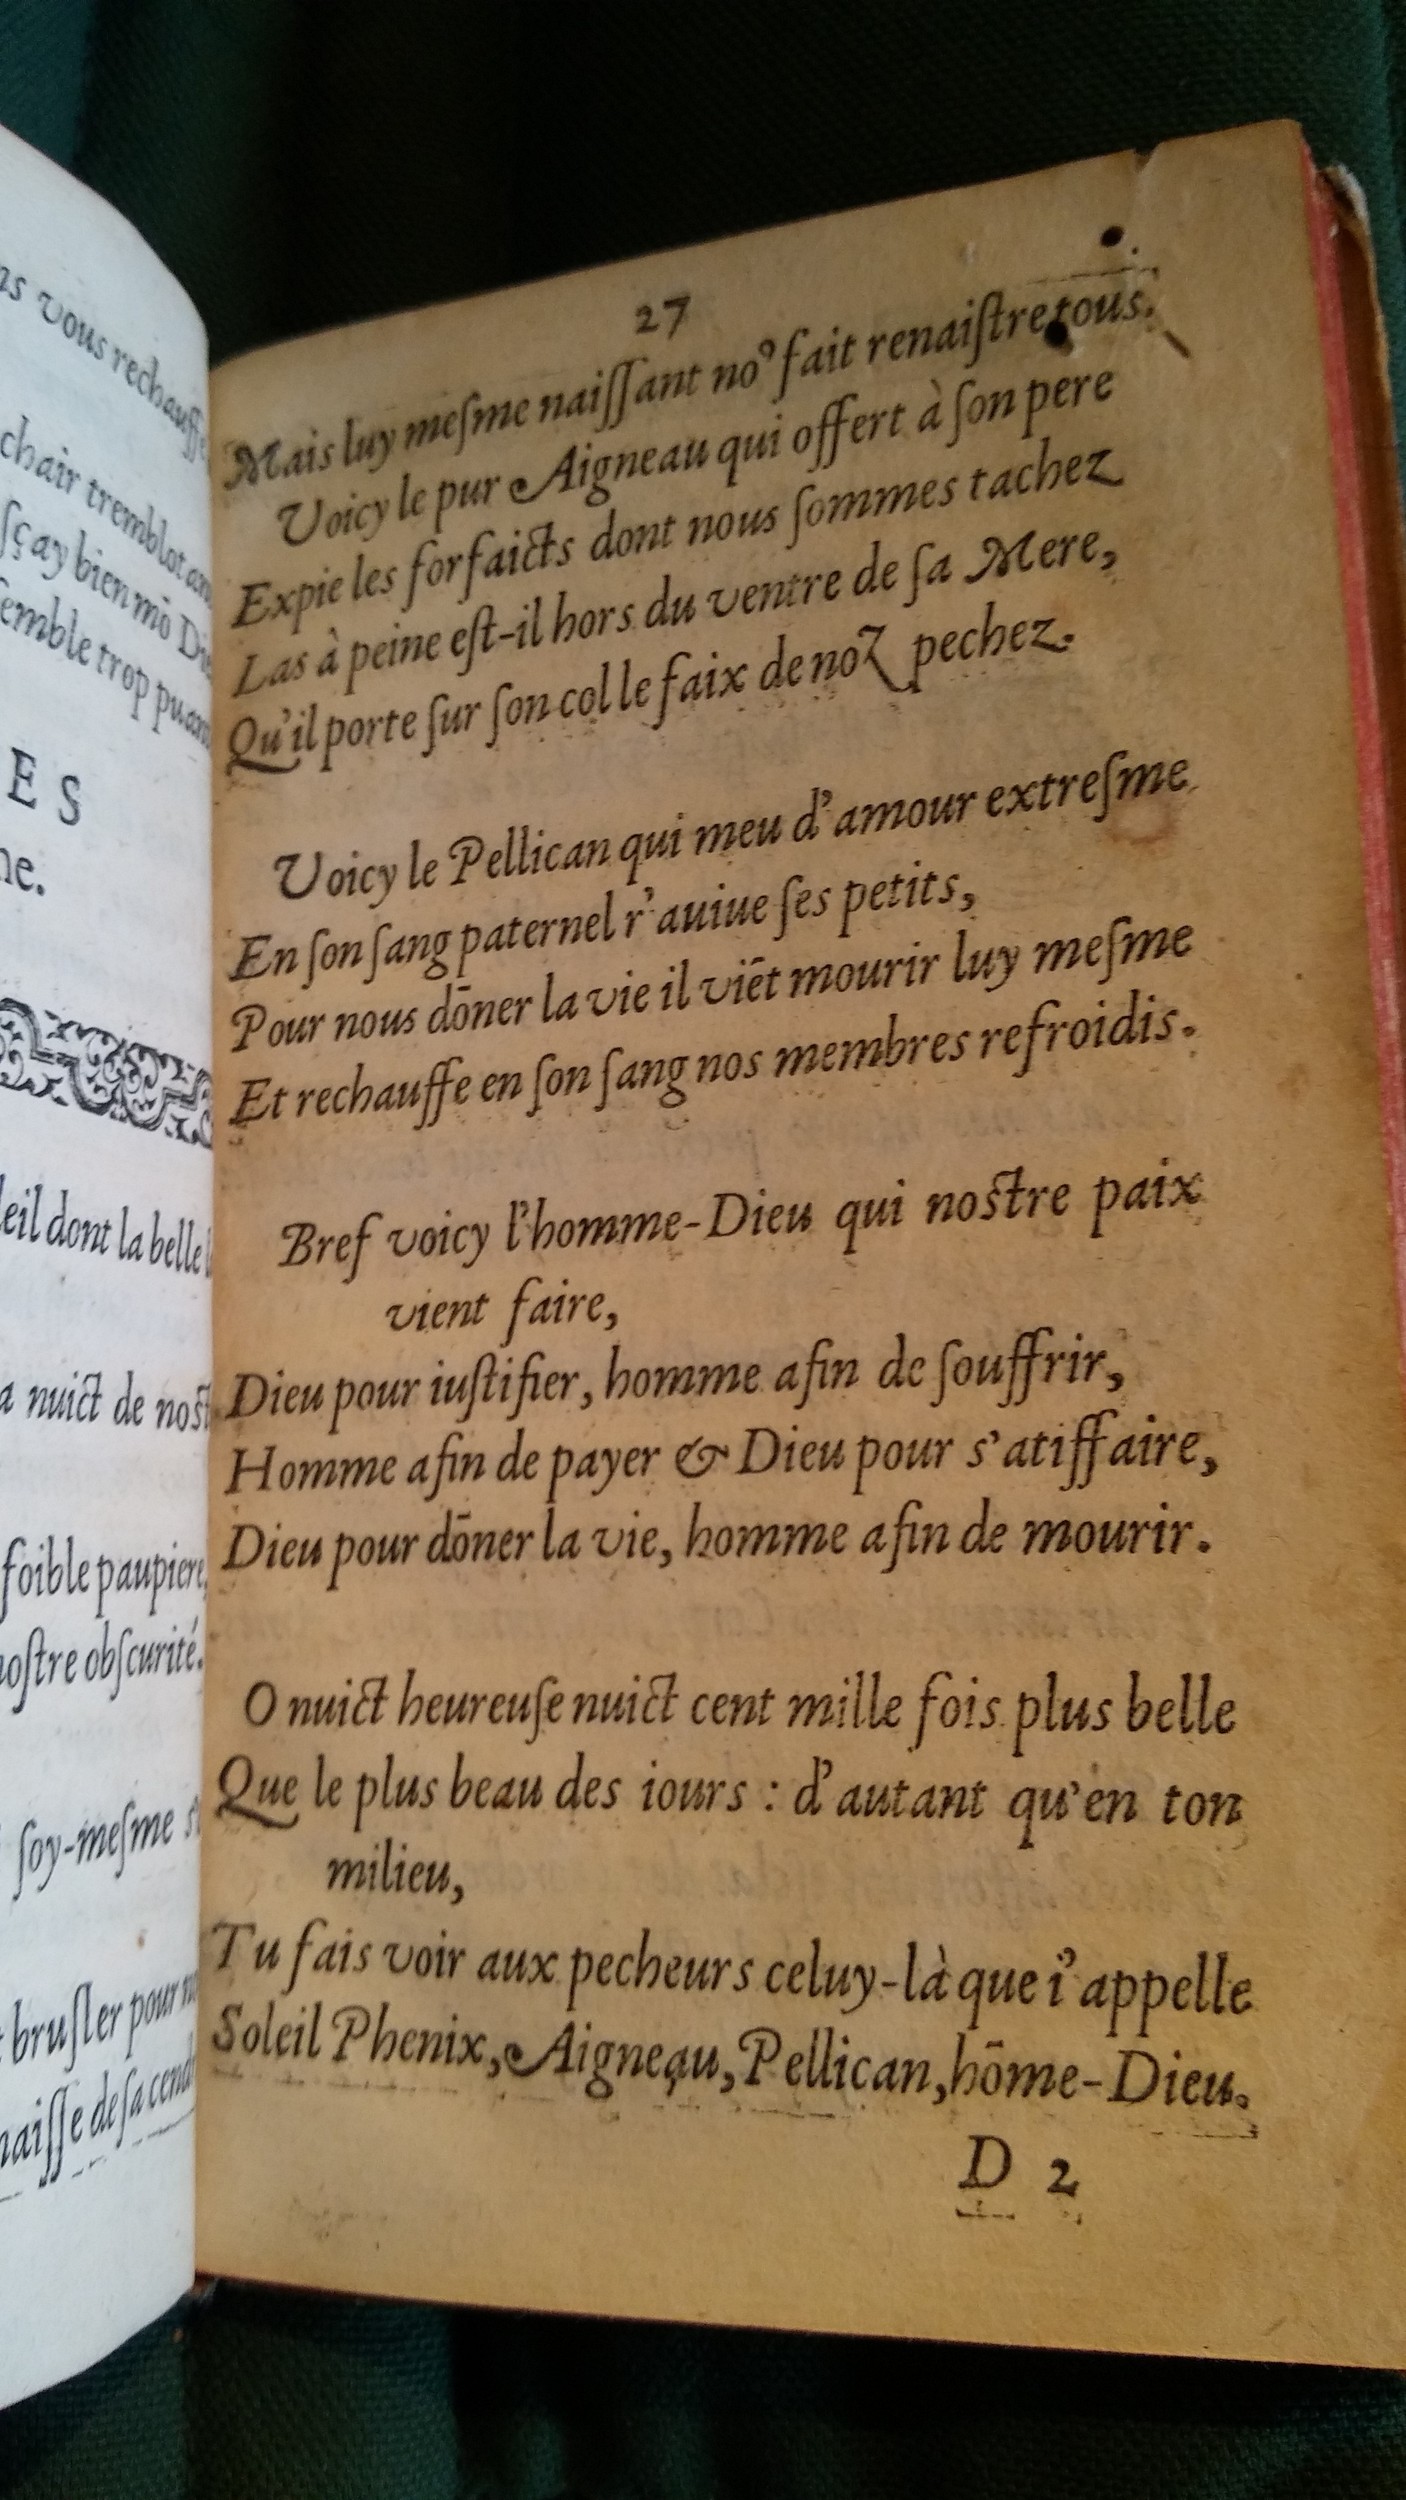 vous rechauffe
chair tremblotan
sçay bien mō Die
semble trop puant
E S
ne.
leil dont la belle
a nuict de nost
foible paupiere,
nostre obscurité.
soy-mesme
brusler pour
naisse de sa cend
27
Mais luy meſme naiſſant noꝰ fait renaiſtre tous.
Voicy le pur Aigneau qui offert à ſon pere
Expie les forfaicts dont nous ſommes tachez
Las à peine eſt-il hors du ventre de ſa Mere,
Qu'il porte ſur ſon col le faix de noz pechez.
Voicy le Pellican qui meu d'amour extreſme
En ſon ſang paternel r'auiue ſes petits,
Pour nous dōner la vie il viēt mourir luy meſme
Et rechauffe en ſon ſang nos membres refroidis.
Bref voicy l'homme-Dieu qui nostre paix
vient faire,
Dieu pour iuſtifier, homme afin de ſouffrir,
Homme afin de payer & Dieu pour s'atiffaire,
Dieu pour dōner la vie, homme afin de mourir.
O nuict heureuſe nuict cent mille fois plus belle
Que le plus beau des iours : d'autant qu'en ton
milieu,
Tu fais voir aux pecheurs celuy-là que i'appelle
Soleil Phenix, Aigneau, Pellican, hōme-Dieu.
D 2